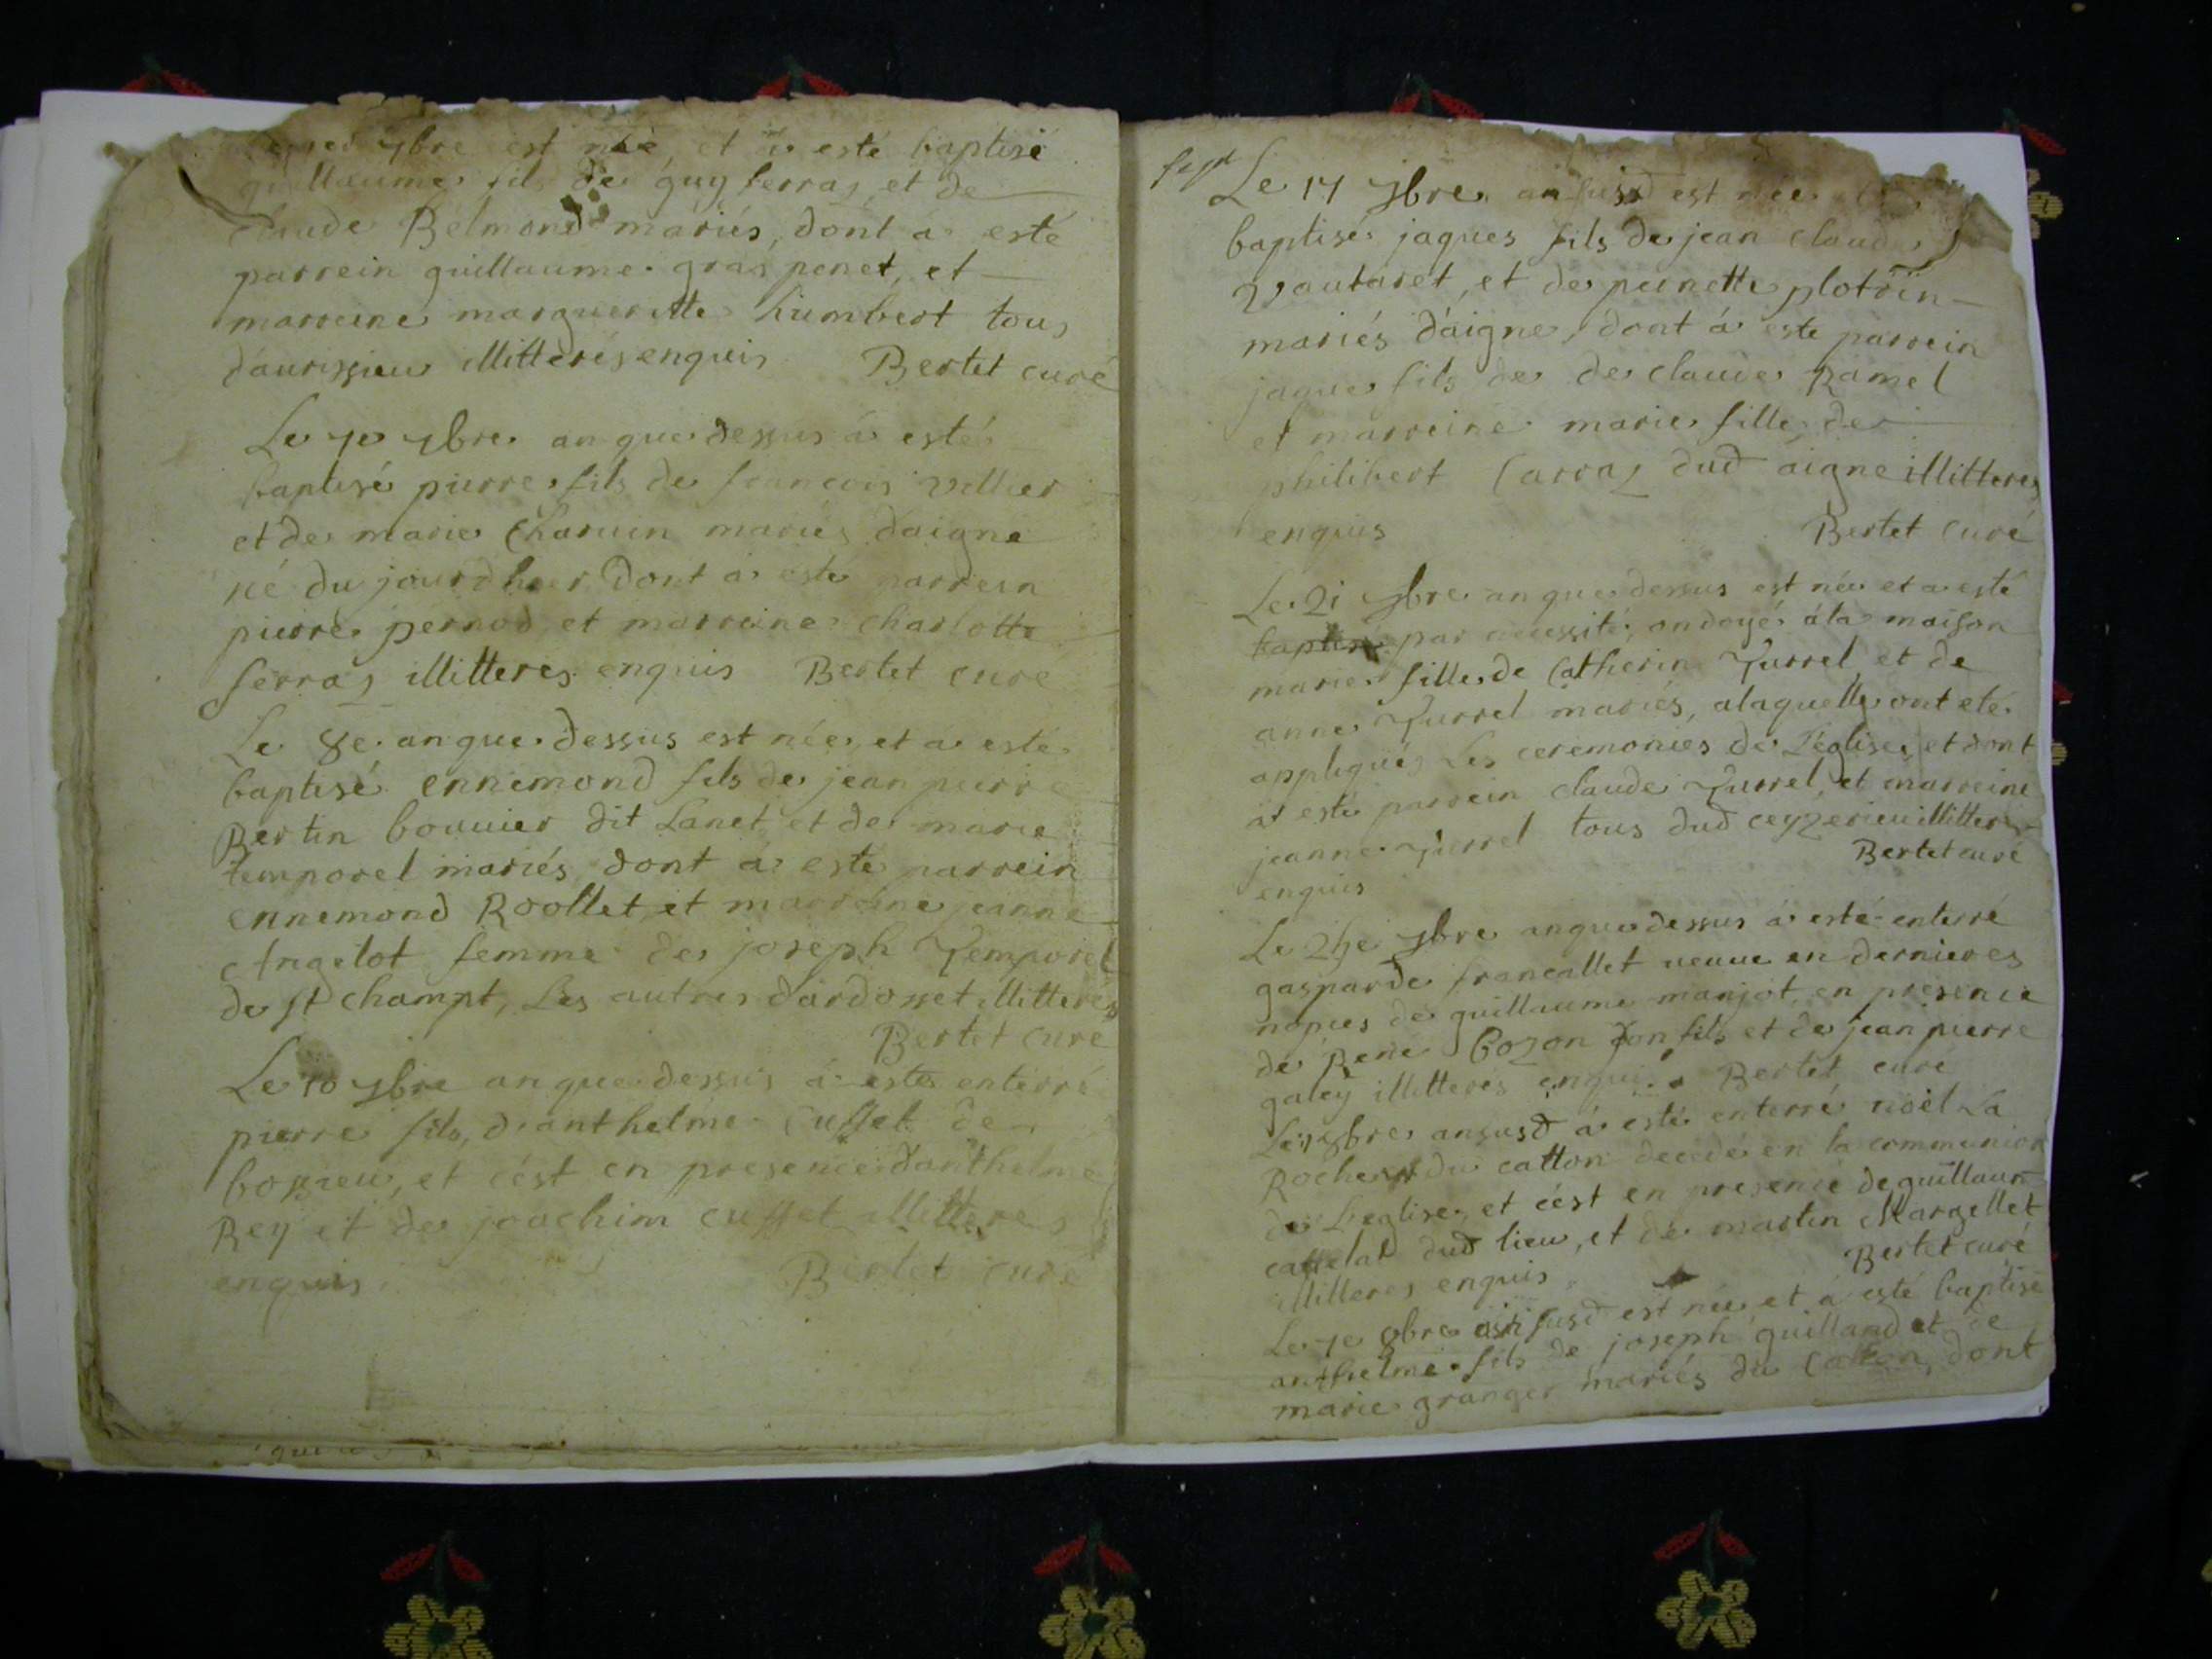 7bre est née et a esté baptisé
guillaume fils de guy ferraz et de
claude Belmond mariés, dont a esté
parrein guillaume gras penet, et
marreine margueritte humbert tous
d'aurissieu illitterés enquis Bertet curé
Le 7e 7bre an que dessus á esté
baptisé pierre fils de francois vellier
et de marie Charuin mariés d'aigne
né du jourdhuy dont a esté parrein
pierre pernod et marreine charlotte
ferraz illitteres enquis Bertet cure
Le 8e an que dessus est née, et á esté
baptisé ennemond fils de jean pierre
Bertin bouuier dit Lanet et de marie
temporel mariés dont á esté parrein
ennemond Roollet et marreine jeanne
Angelot femme de joseph Temporel
de st champt, Les autres d'ardosset illitterés
Bertet curé
Le 10 7bre an que dessus á esté enterré
pierre fils d'anthelme cuffet de
bossieu, et cést en presence d'anthelme
Rey et de joachim cuffet illitteres
enquis Bertet curé
sept Le 17 7bre an susd est née
baptisé jaques fils de jean claude
vautaret, et de pernette plottin
mariés d'aigne, dont á esté parrein
jaques fils de de claude Ramel
et marreine marie fille de
philibert Carraz dud aigne illitteres
enquis Bertet curé
Le 21 7bre an que dessus est née et a esté
baptisé par necessité, ondoyé á la maison
marie fille de Catherin Jurrel et de
anne Jurrel mariés, a laquelle ont eté
appliqués Les ceremonies de L'eglise, et dont
at esté parrein claude Jurrel, et marreine
jeanne Jurrel tous dud ceyzerieu illitteres
enquis Bertet curé
Le 24e 7bre an que dessus á esté enterré
gasparde francallet ueuue en dernieres
nopces de guillaume manjot, en presence
de Rene bozon son fils et de jean pierre
galey illitteres enquis Bertet curé
Le 8bre an susd á esté enterré noël La
Roche du catton decedé en la communion
de L'eglise, et cést en presence de guillaume
cattelat dud lieu, et de martin Margellet
illitteres enquis Bertet curé
Le 7e 8bre an susd est née et á esté baptisé
anthelme fils de joseph guilland et de
marie granger mariés du Catton, dont